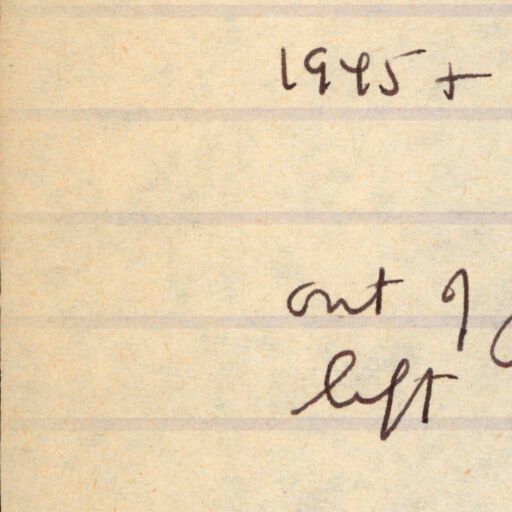 1945 +
out of
left